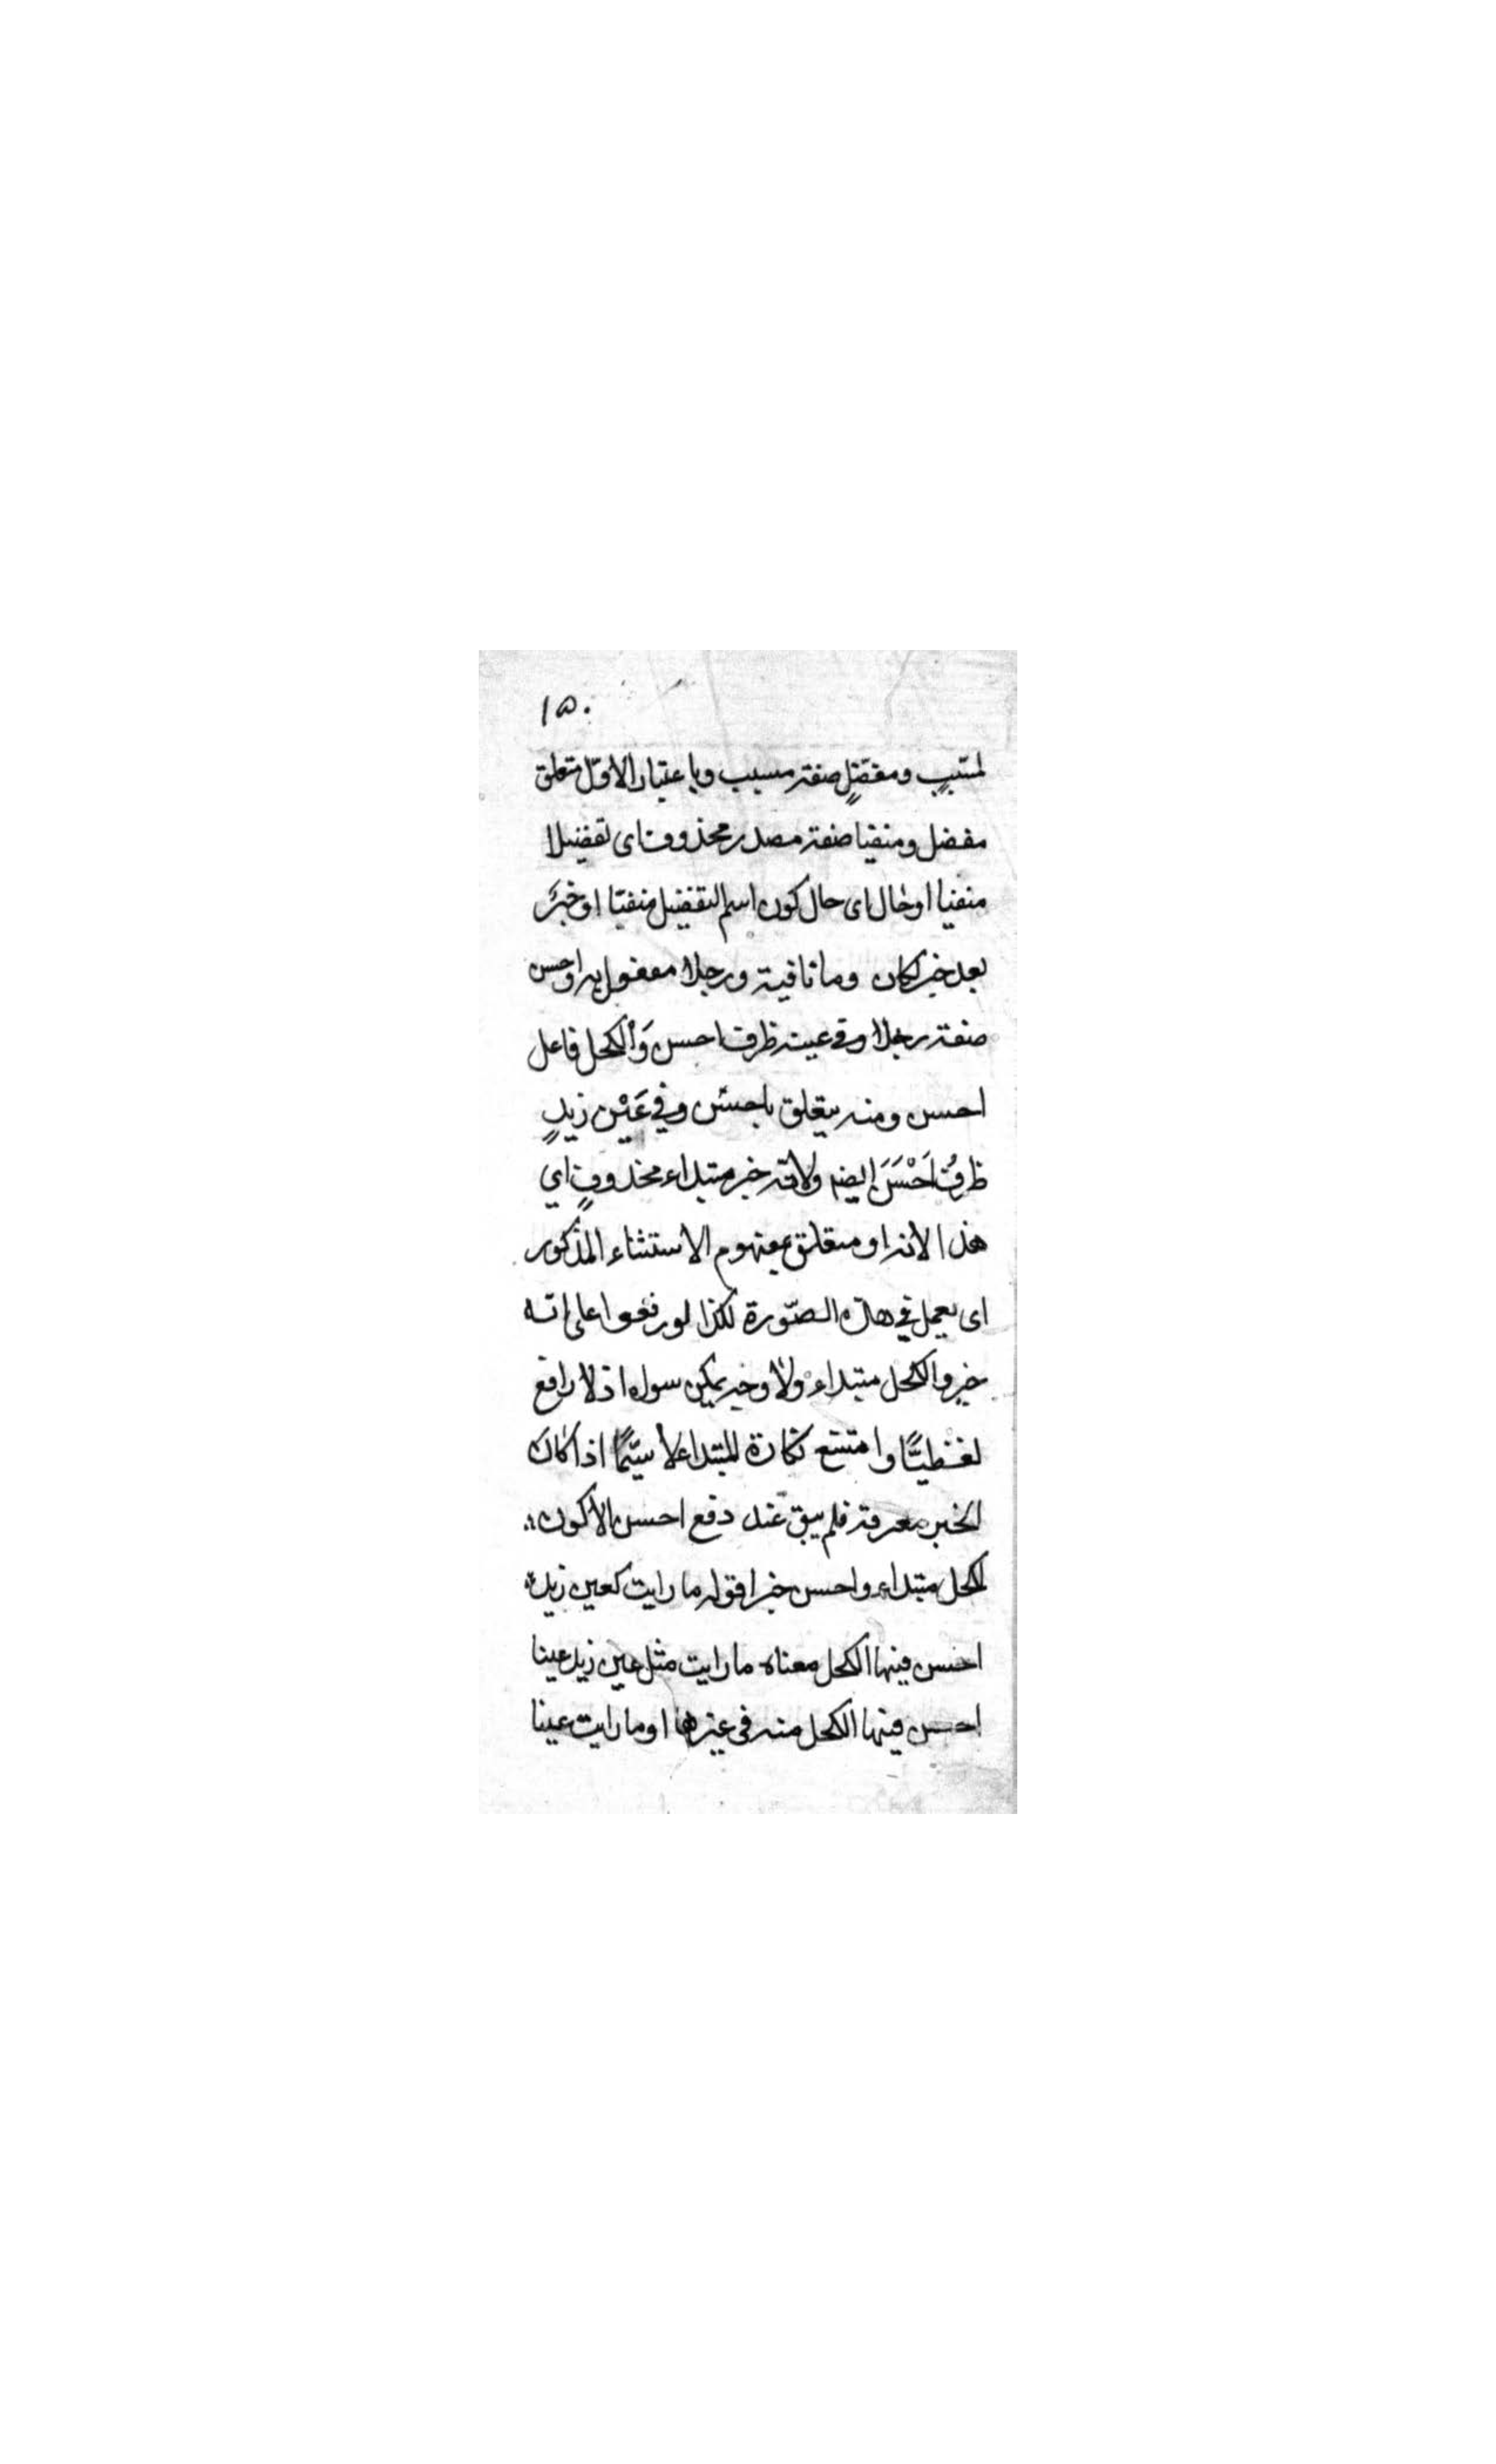 ١٥٠
لمسبّبٍ ومفضّلٍ صفته مسبب وباعتبار الاوّل متعلق
مفضل ومنفيا صفته مصدر محذوف اى تفضيلا
منفيا او حال اى حال كون اسم التفضيل منفيّا او خبَرَ
بعد خبر لكان وما نافية ورجلا مفعول به واحسن
صفته رجلا وفى عينه ظرف احسن وَالكحل فاعل
احسن ومنه يتعلق باحسَن وفي عَيْن زيدٍ
ظرفُ اَحْسَنَ ايضا ولانّه خبر مبتداء محذوفٍ اي
هذا لانه او متعلق بمفهوم الاستثناء المذكور
اى يعمل في هذه الصّورة لكذا لو رفعوا على انه
خبر والكحل مبتداء ولا وجه يمكن سواه اذ لا رافع
لفظيًّا وامتنع نكارة المبتداء لا سيّمًا اذا كانَ
الخبر معرفة فلم يبق عند دفع احسن الا كون
الكحل مبتداء واحسن خبرا قوله ما رايت كعين زيد
احسن فيها الكحل معناه ما رايت مثل عين زيد عينا
احسن فيها الكحل منه فى غيرها او ما رايت عينا